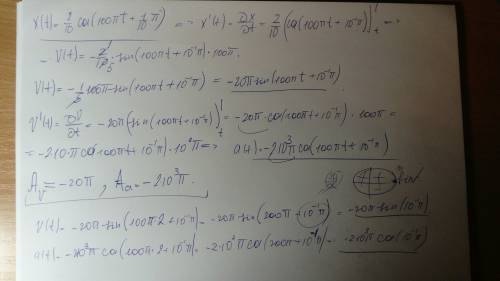 x(t)=2/10 cos(100πt+1/10 π) => x'(t)=Dx/Dt=2/10(cos(100πt+10⁻¹π))'t =>
- V(t)=-2/10 · sin(100πt+10⁻¹π)·100π.
V(t)=-1/5 100π·sin(100πt+10⁻¹π) = -20π sin(100πt+10⁻¹π)
V'(t)=DV/Dt=-20π(sin(100πt+10⁻¹π))'t=-20π·cos(100πt+10⁻¹π)·100π=
=-2·10·π cos(100πt+10⁻¹π)·10²π=> a(t)=-2·10³π cos(100πt+10⁻¹π)
Av=-20π, Aa=-2·10³π.
V(t)=-20π·sin(100π·2+10⁻¹π)=-20π·sin(200π+10⁻¹π)=-20π sin(10⁻¹π)
a(t)=-2·10³π cos(100π·2+10⁻¹π)=-2·10³π cos(200π+10⁻¹π)=-2·10³π cos(10⁻¹π)